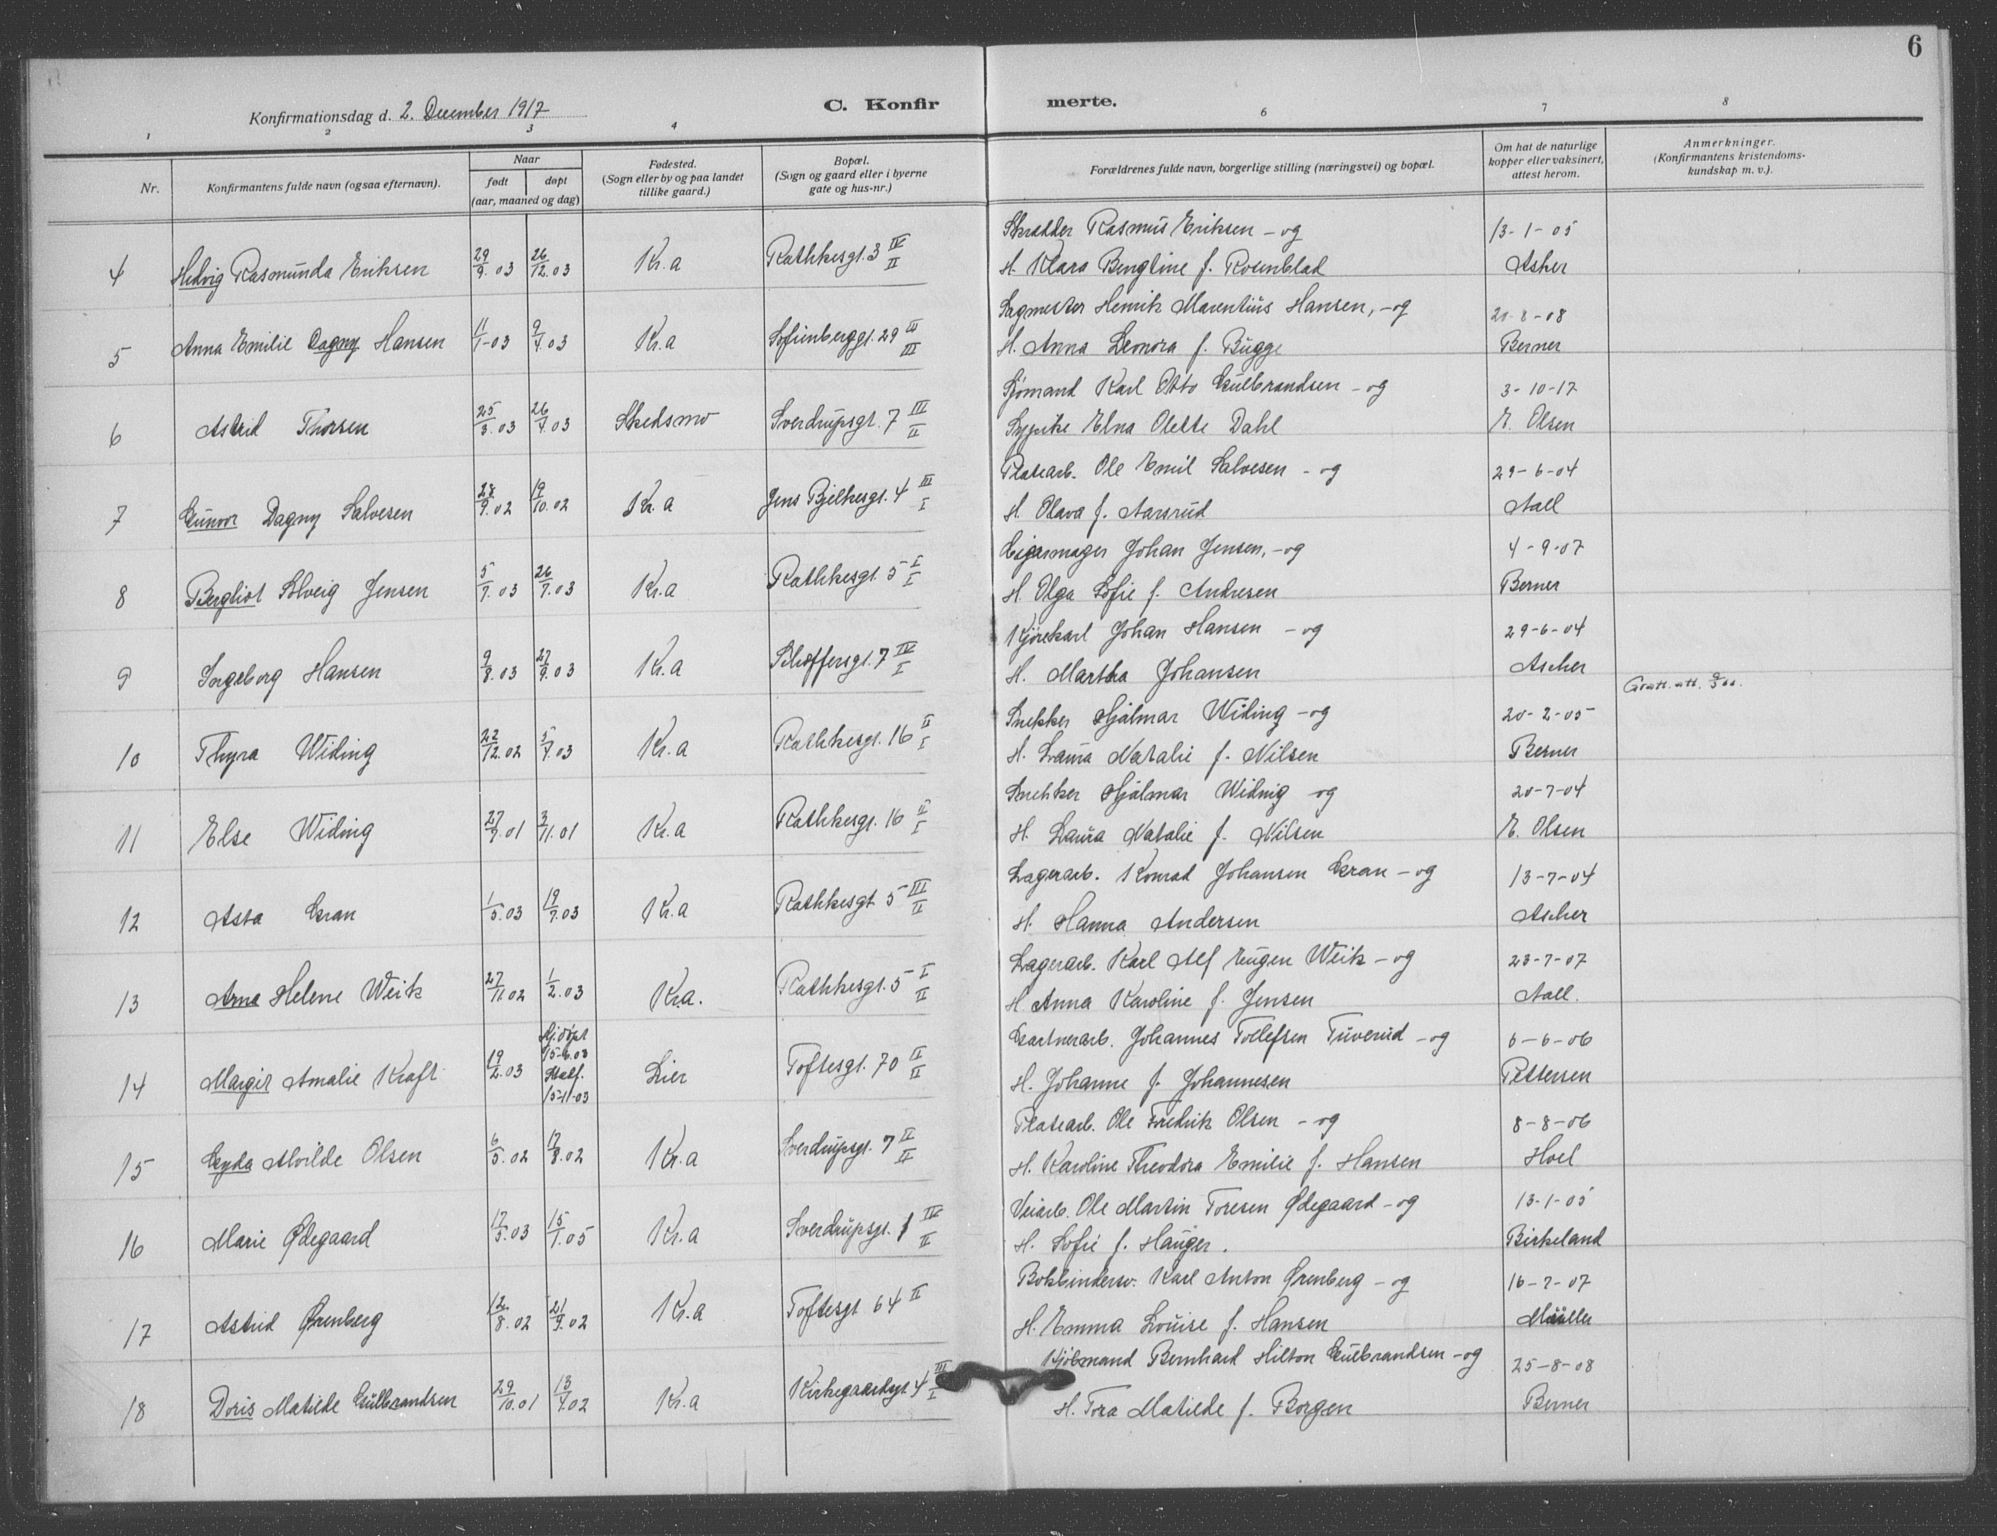 6
Konfirmationsdag d. 2. December 1917
C. Konfirmerte.
1 2 3 4 6 7 8
Nr.
Konfirmantens fulde navn (ogsaa efternavn).
Naar
født døpt
(aar, maaned og dag)
Fødested.
(Sogn eller by og paa landet
tillike gaard.)
Bopæl.
(Sogn og gaard eller i byerne
gate og hus-nr.)
Forældrenes fulde navn, borgerlige stilling (næringsvei) og bopæl.
Om hat de naturlige
kopper eller vaksinert,
attest herom.
Anmerkninger.
(Konfirmantens kristendoms-
kundskap m. v.).
Skrædder Rasmus Eriksen – og 13-1-05
4 Hedvig Rasmunda Eriksen 29/9.03 26/12.03 Kr.a Rathkesgt. 3 IV/II H. Klara Bengtine f. Rosenblad Asher
Sagmester Henrik Marentius Hansen, – og 21-8-08
5 Anna Emilie Dagny Hansen 11/1-03 9/4.03 Kr.a Sofienberggt. 29 III/III H. Anna Leonora f. Bugge Berner
Sjømand Karl Otto Gulbrandsen – og 3-10-17
6 Astrid Thorsen 25/3.03 26/4.03 Skedsmo Sverdrupsgt. 7 III/II Sypike Elna Olette Dahl E. Olsen
Platearb. Ole Emil Salvesen – og 29-6-04
7 Gunvor Dagny Salvesen 9.02 19/10.02 Kr.a Jens Bjelkesgt. 4 III/I H. Olava f. Aarsrud Aall
Cigarmager Johan Jensen, – og 4-9-07
8 Bergliot Solveig Jensen 5/7.03 26/7.03 Kr.a Rathkesgt. 5 I/I H. Olga Sofie f. Andresen Berner
Kjørekarl Johan Hansen – og 29-6-04
9 Ingeborg Hansen 9/8.03 27/9.03 Kr.a Schoffersgt. 7 IV/I H. Martha Johansen Ascher
Snekker Hjalmar Widing – og 20-2-05
10 Thyra Widing 22/12.02 5/7.03 Kr.a Rathkesgt. 16 II/I H. Laura Natalie f. Nilsen Berner
Snekker Hjalmar Widing – og 20-7-04
11 Else Widing 27/7.01 3/11.01 Kr.a Rathkesgt. 16 II/I H. Laura Natalie f. Nilsen E. Olsen
Lagerarb. Konrad Johansen Gran – og 13-7-04
12 Asta Gran 1/5.03 19/7.03 Kr.a Rathkesgt. 5 III/II H. Hanna Andersen Ascher
Lagerarb. Karl Alf Eugen Weik – og 23-7-07
13 Arna Helene Weik 27/11.02 1/2.03 Kr.a. Rathkesgt. 5 I/II H. Anna Karoline f. Jensen Aall.
Gartnerarb. Johannes Tollefsen Tuverud – og 6-6-06
14 Margit Amalie Kraft 19/2.03 Hj.døpt 15-6.03 Stadf. 15-11-03 Lier Toftesgt. 70 II/II H. Johanne f. Johannesen Pettersen
Platearb. Ole Fredrik Olsen – og 8-8-06
15 Gyda Alvilde Olsen 6/5.02 17/8.02 Kr.a Sverdrupsgt. 7 II/II H. Karoline Theodora Emilie f. Hansen Hoel
Veiarb. Ole Martin Toresen Ødegaard – og 13-1-05
16 Marie Ødegaard 17/5.03 15/1.05 Kr.a Sverdrupsgt. 1 IV/II H. Sofie f. Hauger. Birkeland
Bokbindersv. Karl Anton Ørenberg – og 16-7-07
17 Astrid Ørenberg 12/8.02 21/9.02 Kr.a Toftesgt 64 II H. Emma Louise f. Hansen Müller
Kjøbmand Bernhard Hilton Gulbrandsen – og 25-8-08
18 Doris Matilde Gulbrandsen 29/10.01 13/4.02 Kr.a Kirkegaardsgt 4 III/I H. Tora Matilde f. Borgen Berner